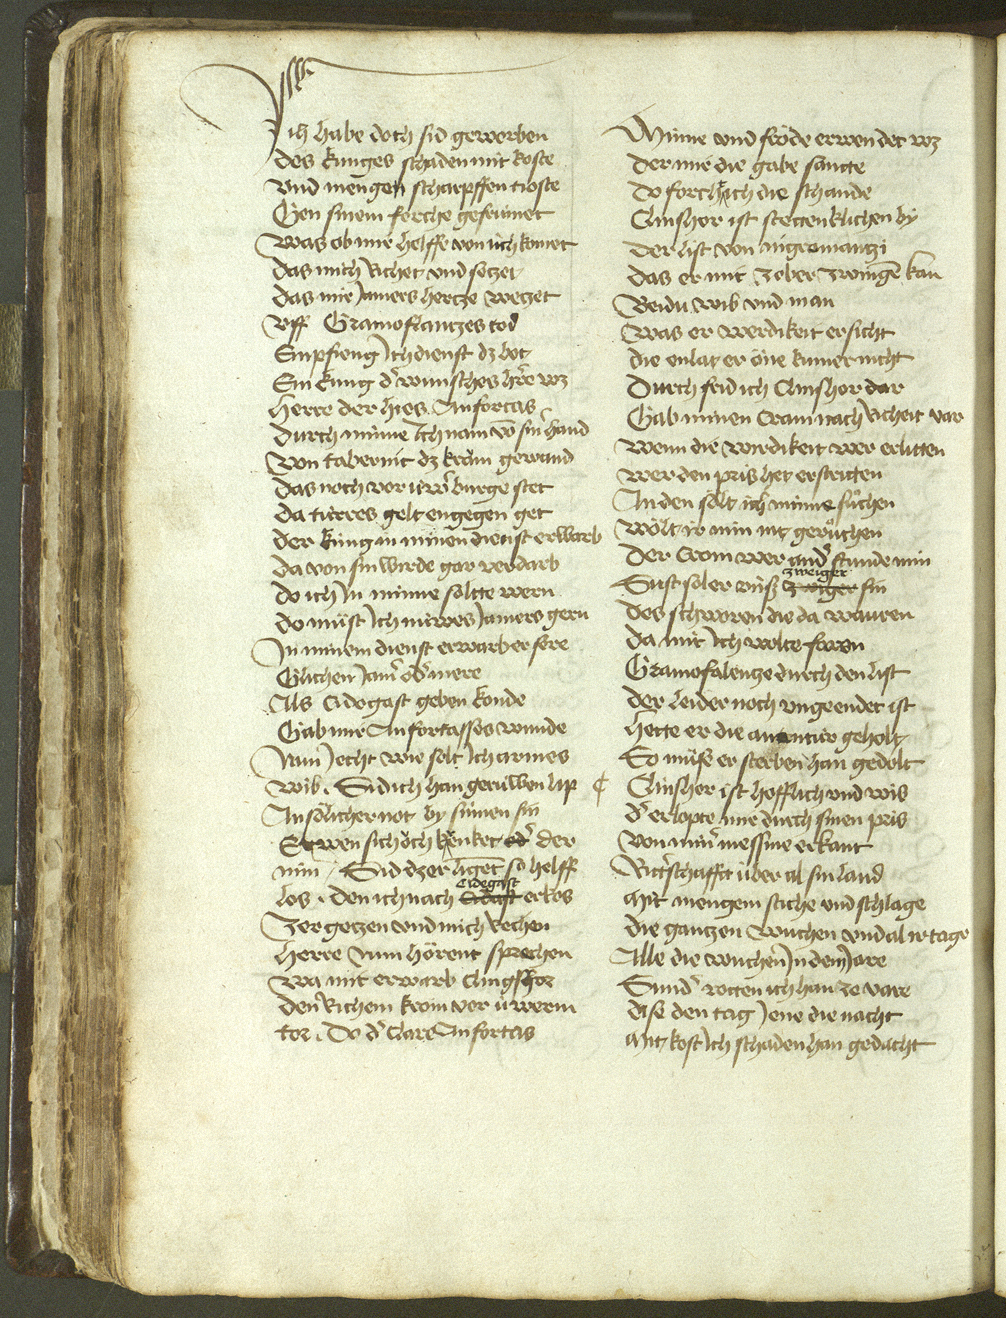 Ich habe doch sid geworben
des kunges schaden mit koste
vnd mengen scharpffen tioste
Gen sinem ferche gefeimet
Was ob mir helffe von üch komet
das mich richet vnd setzet
das mir jamers hertze wetzet
vff Gramoflantzes tod
Enpfieng ich dienst dz bot
Ein kung d' wunsches h're wz
Herre der hies Anfortas
durch minne Ich nam vō sin' hand
von tabernit dz kram gewand
das noch vor üw' burge stet
da türres gelt engegen get
der kung in minen dienst erwarb
da von sin wirde gar verdarb
do ich In minne soltte wern
do müst Ich nuwes jamers gern
In minem dienst erwarb er sere
Glichen jam' od' mere
Als Cidegast geben konde
Gab mir Anfortasses wunde
Nun jecht wie solt Ich armes
wib. Sid ich han getruwen lip
An solicher not by sinnen sin
Etwen sich öch krenket der
min / Sid dz er liget so helff
los. den ich nach Cidegast erkos
Zer getzen vnd mich rechen
Herre nun hörent sprechen
Wa mit erwarb Clingshor
den Richem krom vor üwerm
tor. Do d' clare Anfortas
Minne vnd fröde erwendet wz
der mir die gabe santte
do forcht ich die schande
Clinshor ist stettenklichen by
der list von nigromantzi
das er mit zober zwingē kan
Beidu wib vnd man
Was er werdikeit ersicht
die enlat er one kumer nicht
Durch frid ich Clinshor dar
Gab minen Cram nach richeit var
Wenn die wirdikeit wer erlitten
wer den pris het erstritten
An den solt ich minne süchen
Wölt er min nit gerüchen
Der Crom wer and' stunde min
Sust sol er vnser zweiger sin
des schworen die da wauren
da mit Ich wolte faren
Gramofalentze durch den list
der leider noch vngeendet ist
Hette er die auentür geholt
So müse er sterben han gedolt
¶ Clinshor ist hofflich vnd wis
d' erlopte mir durch sinen pris
von mir messnie erkant
Rit'schafft über al sin land
Mit mengem stiche vnd schlage
die gantzen wuchen vnd al ir tage
Alle die wuchen In dem jare
Sund' rotten ich han ze vare
dise den tag jene die nacht
Mit kost Ich schaden han gedacht